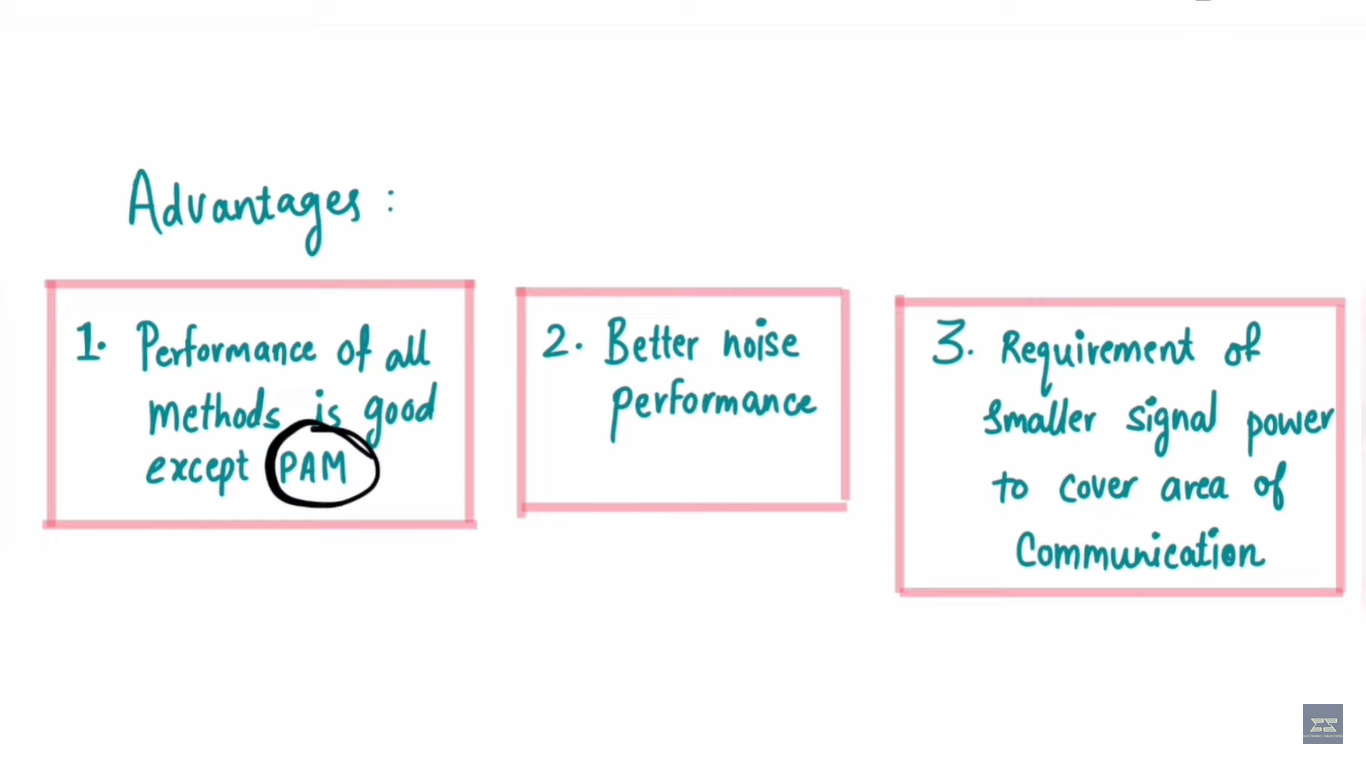 Advantages :
1. Performance of all
methods is good
except PAM
2. Better noise
performance
3. Requirement of
smaller signal power
to cover area of
Communication